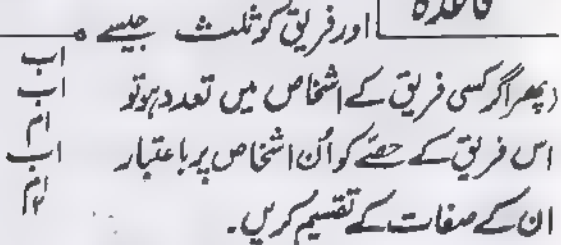 قاعدہ
اور فریق کو ثلث جیسے
اب
(پھر اگر کسی فریق کے اشخاص میں تعدد ہو تو
اب
ام
اس فریق کے حصے کو اُن اشخاص پر باعتبار
اب
ان کے صفات کے تقسیم کریں۔
ام